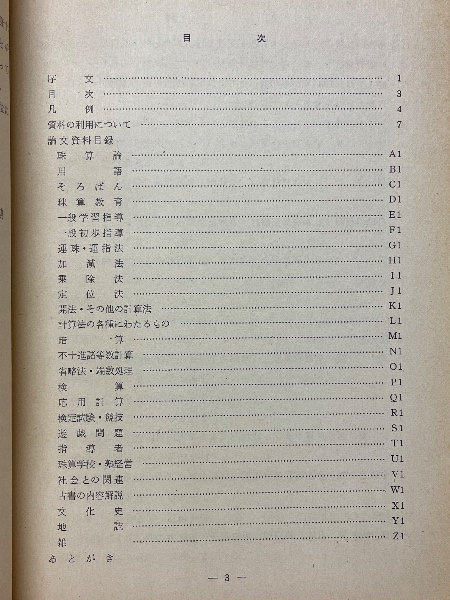 目次
序文 1
目次 3
凡例 4
資料の利用について 7
論文資料目録
珠算論 A1
用語 B1
そろばん C1
珠算教育 D1
一般学習指導 E1
一般初歩指導 F1
運珠・運指法 G1
加減法 H1
乗除法 I1
定位法 J1
開法・その他の計算法 K1
計算法の各種にわたるもの L1
暗算 M1
不十進諸等数計算 N1
省略法・端数処理 O1
検算 P1
応用計算 Q1
検定試験・競技 R1
遊戯問題 S1
指導者 T1
珠算学校・塾経営 U1
社会との関連 V1
古書の内容解説 W1
文化史 X1
地誌 Y1
雑 Z1
あとがき
— 3 —